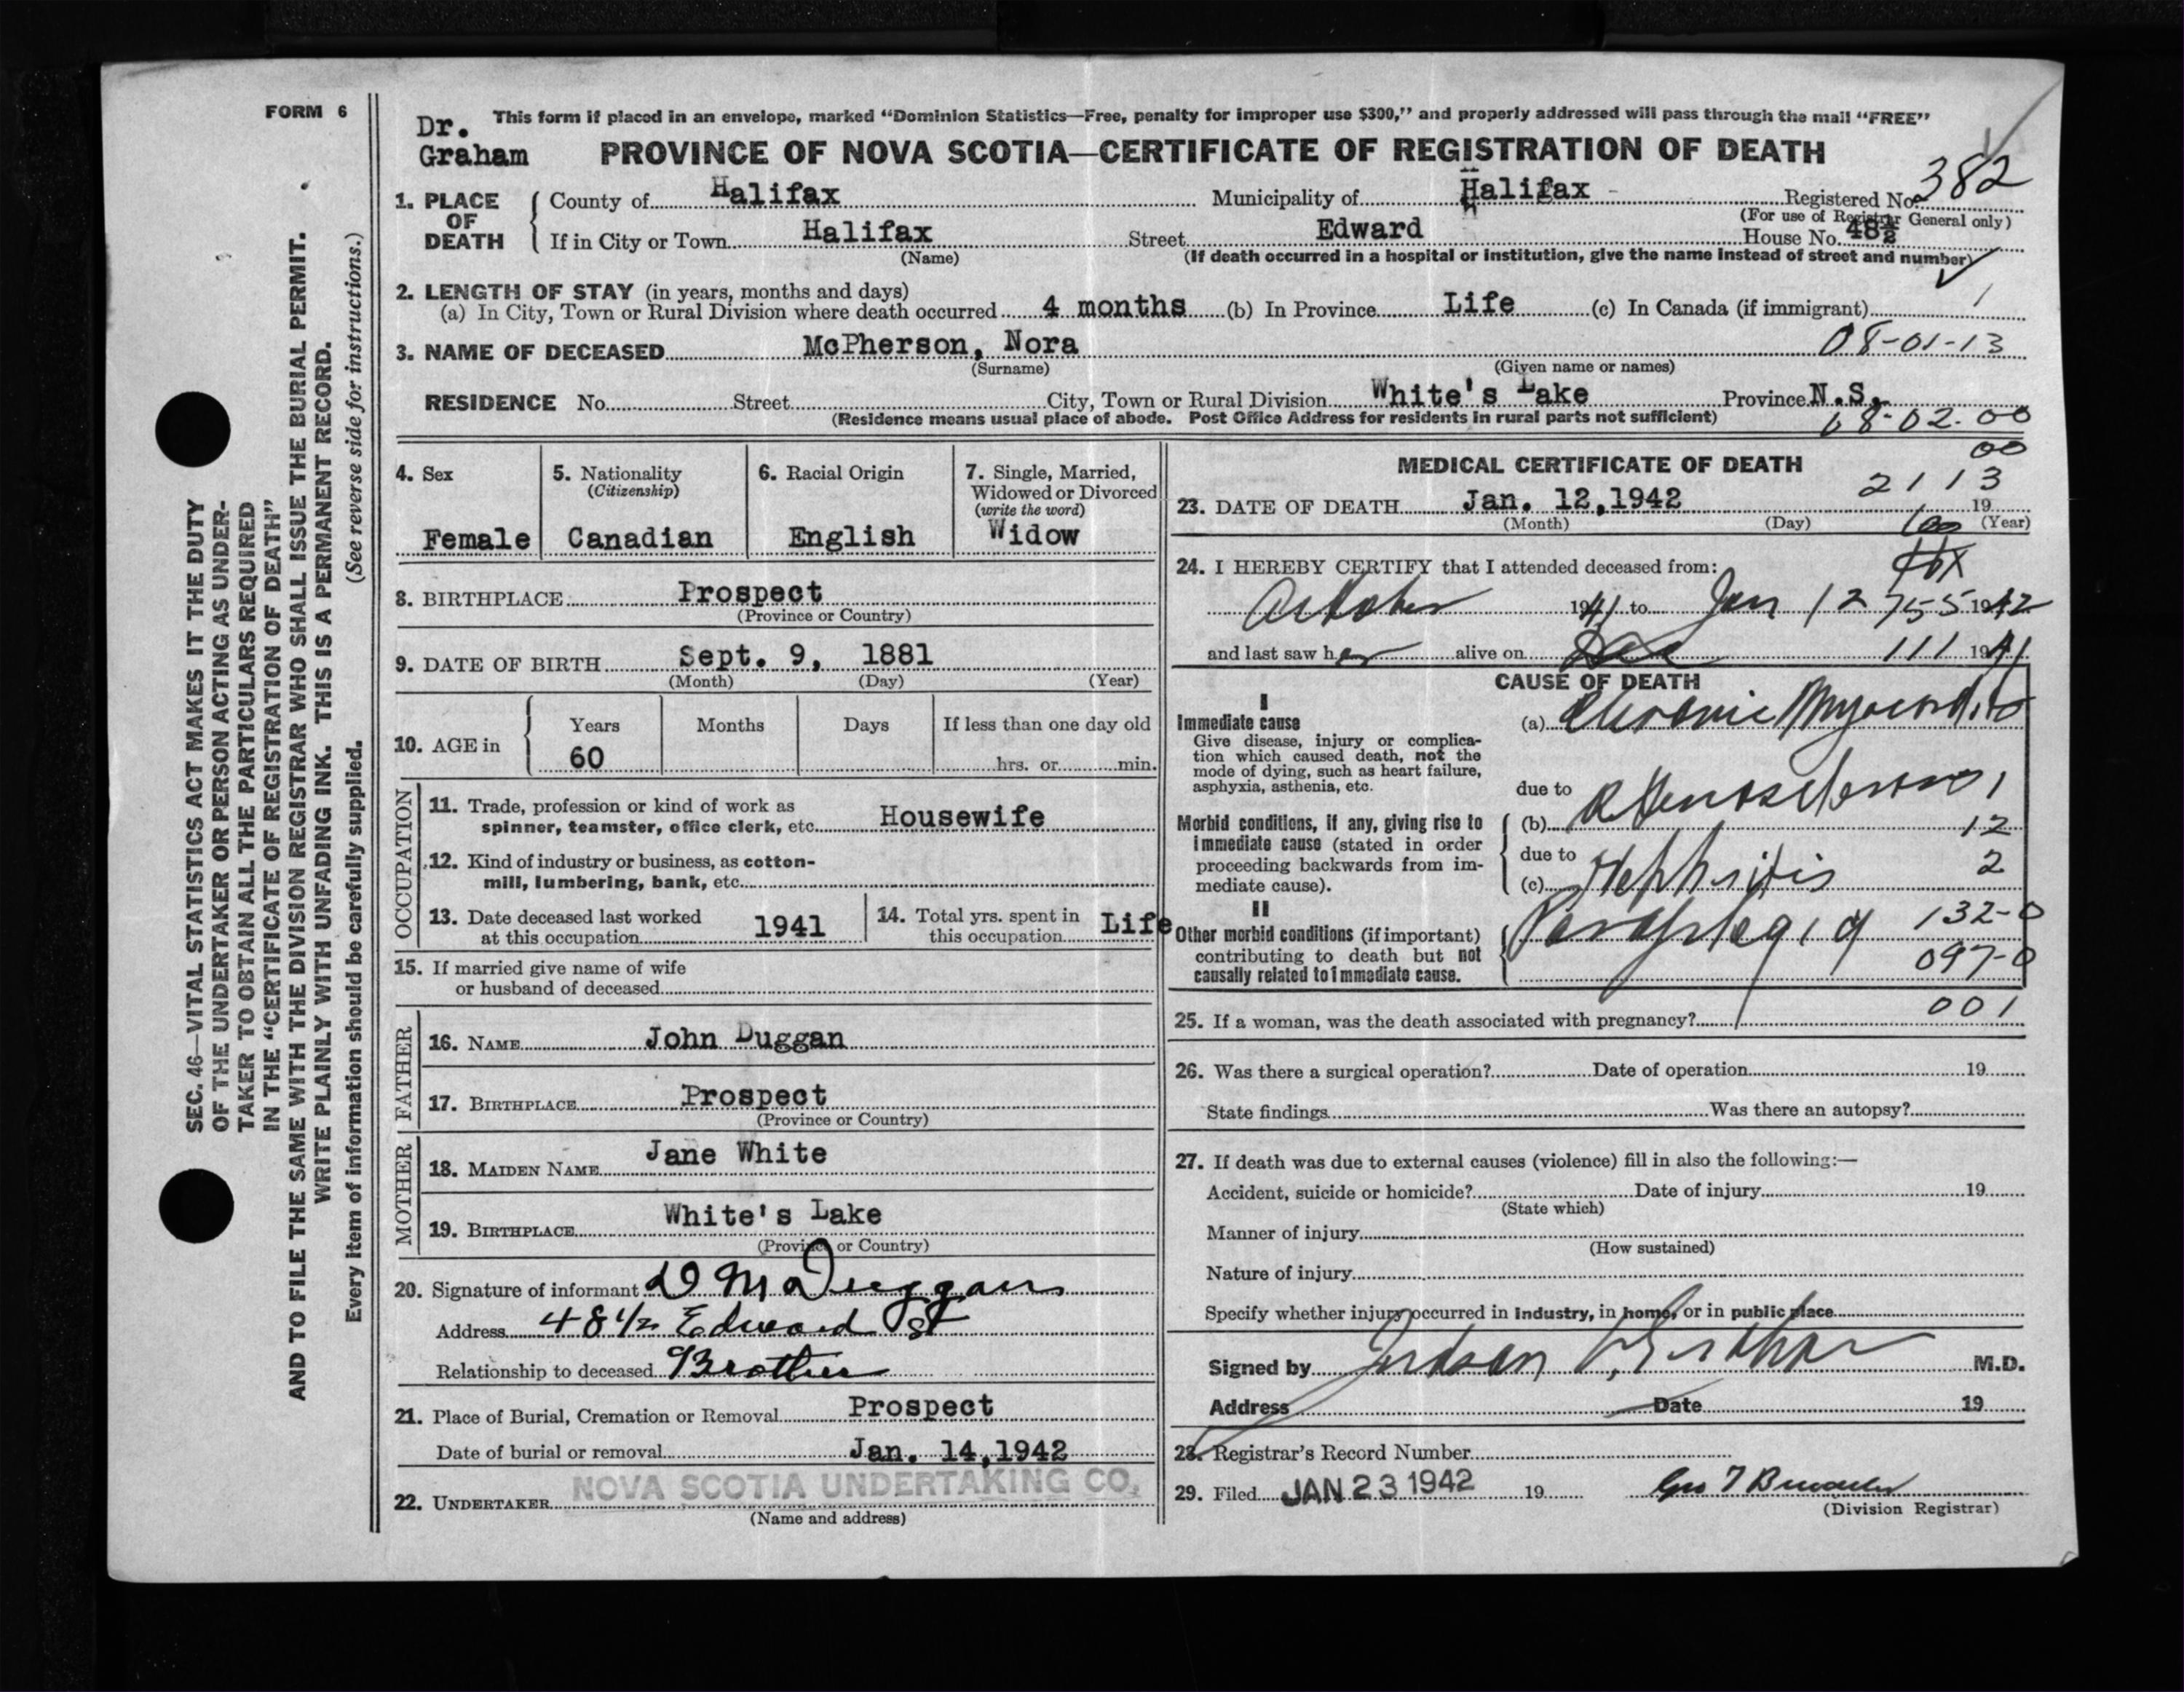 FORM 6
SEC. 46—VITAL STATISTICS ACT MAKES IT THE DUTY
OF THE UNDERTAKER OR PERSON ACTING AS UNDER-
TAKER TO OBTAIN ALL THE PARTICULARS REQUIRED
IN THE "CERTIFICATE OF REGISTRATION OF DEATH"
AND TO FILE THE SAME WITH THE DIVISION REGISTRAR WHO SHALL ISSUE THE BURIAL PERMIT.
WRITE PLAINLY WITH UNFADING INK. THIS IS A PERMANENT RECORD.
Every item of information should be carefully supplied. (See reverse side for instructions.)
This form if placed in an envelope, marked "Dominion Statistics—Free, penalty for improper use $300," and properly addressed will pass through the mail "FREE"
Dr.
Graham
PROVINCE OF NOVA SCOTIA—CERTIFICATE OF REGISTRATION OF DEATH
1. PLACE OF DEATH
County of Halifax Municipality of Halifax Registered No. 382
(For use of Registrar General only)
If in City or Town Halifax Street Edward House No. 48½
(Name) (If death occurred in a hospital or institution, give the name instead of street and number)
2. LENGTH OF STAY (in years, months and days)
(a) In City, Town or Rural Division where death occurred 4 months (b) In Province Life (c) In Canada (if immigrant)
3. NAME OF DECEASED McPherson, Nora 08-01-13
(Surname) (Given name or names)
RESIDENCE No. Street City, Town or Rural Division White's Lake Province N.S.
(Residence means usual place of abode. Post Office Address for residents in rural parts not sufficient) 08-02-00
00
4. Sex
Female
5. Nationality
(Citizenship)
Canadian
6. Racial Origin
English
7. Single, Married,
Widowed or Divorced
(write the word)
Widow
8. BIRTHPLACE Prospect
(Province or Country)
9. DATE OF BIRTH Sept. 9, 1881
(Month) (Day) (Year)
10. AGE in
Years Months Days If less than one day old
60 hrs. or min.
OCCUPATION
11. Trade, profession or kind of work as
spinner, teamster, office clerk, etc. Housewife
12. Kind of industry or business, as cotton-
mill, lumbering, bank, etc.
13. Date deceased last worked
at this occupation 1941
14. Total yrs. spent in
this occupation Life
15. If married give name of wife
or husband of deceased
FATHER
16. NAME John Duggan
17. BIRTHPLACE Prospect
(Province or Country)
MOTHER
18. MAIDEN NAME Jane White
19. BIRTHPLACE White's Lake
(Province or Country)
20. Signature of informant D M Duggan
Address 48 1/2 Edward St
Relationship to deceased Brother
21. Place of Burial, Cremation or Removal Prospect
Date of burial or removal Jan. 14, 1942
22. UNDERTAKER NOVA SCOTIA UNDERTAKING CO.
(Name and address)
MEDICAL CERTIFICATE OF DEATH
2113
23. DATE OF DEATH Jan. 12, 1942 19
(Month) (Day) (Year)
24. I HEREBY CERTIFY that I attended deceased from:
October 1941 to Jan 12 755 1942
and last saw her alive on Dec 111 1941
CAUSE OF DEATH
I
Immediate cause
Give disease, injury or complica-
tion which caused death, not the
mode of dying, such as heart failure,
asphyxia, asthenia, etc.
(a) Chronic Myocarditis
due to
Morbid conditions, if any, giving rise to
immediate cause (stated in order
proceeding backwards from im-
mediate cause).
(b) Arteriosclerosis 1
12
due to
(c) Nephritis 2
II
Other morbid conditions (if important)
contributing to death but not
causally related to immediate cause.
Paraplegia 132-0
097-0
001
25. If a woman, was the death associated with pregnancy?
26. Was there a surgical operation? Date of operation 19
State findings Was there an autopsy?
27. If death was due to external causes (violence) fill in also the following:—
Accident, suicide or homicide? Date of injury 19
(State which)
Manner of injury
(How sustained)
Nature of injury
Specify whether injury occurred in industry, in home, or in public place
Signed by Judson V. Graham M.D.
Address Date 19
28. Registrar's Record Number
29. Filed JAN 23 1942 19
(Division Registrar)